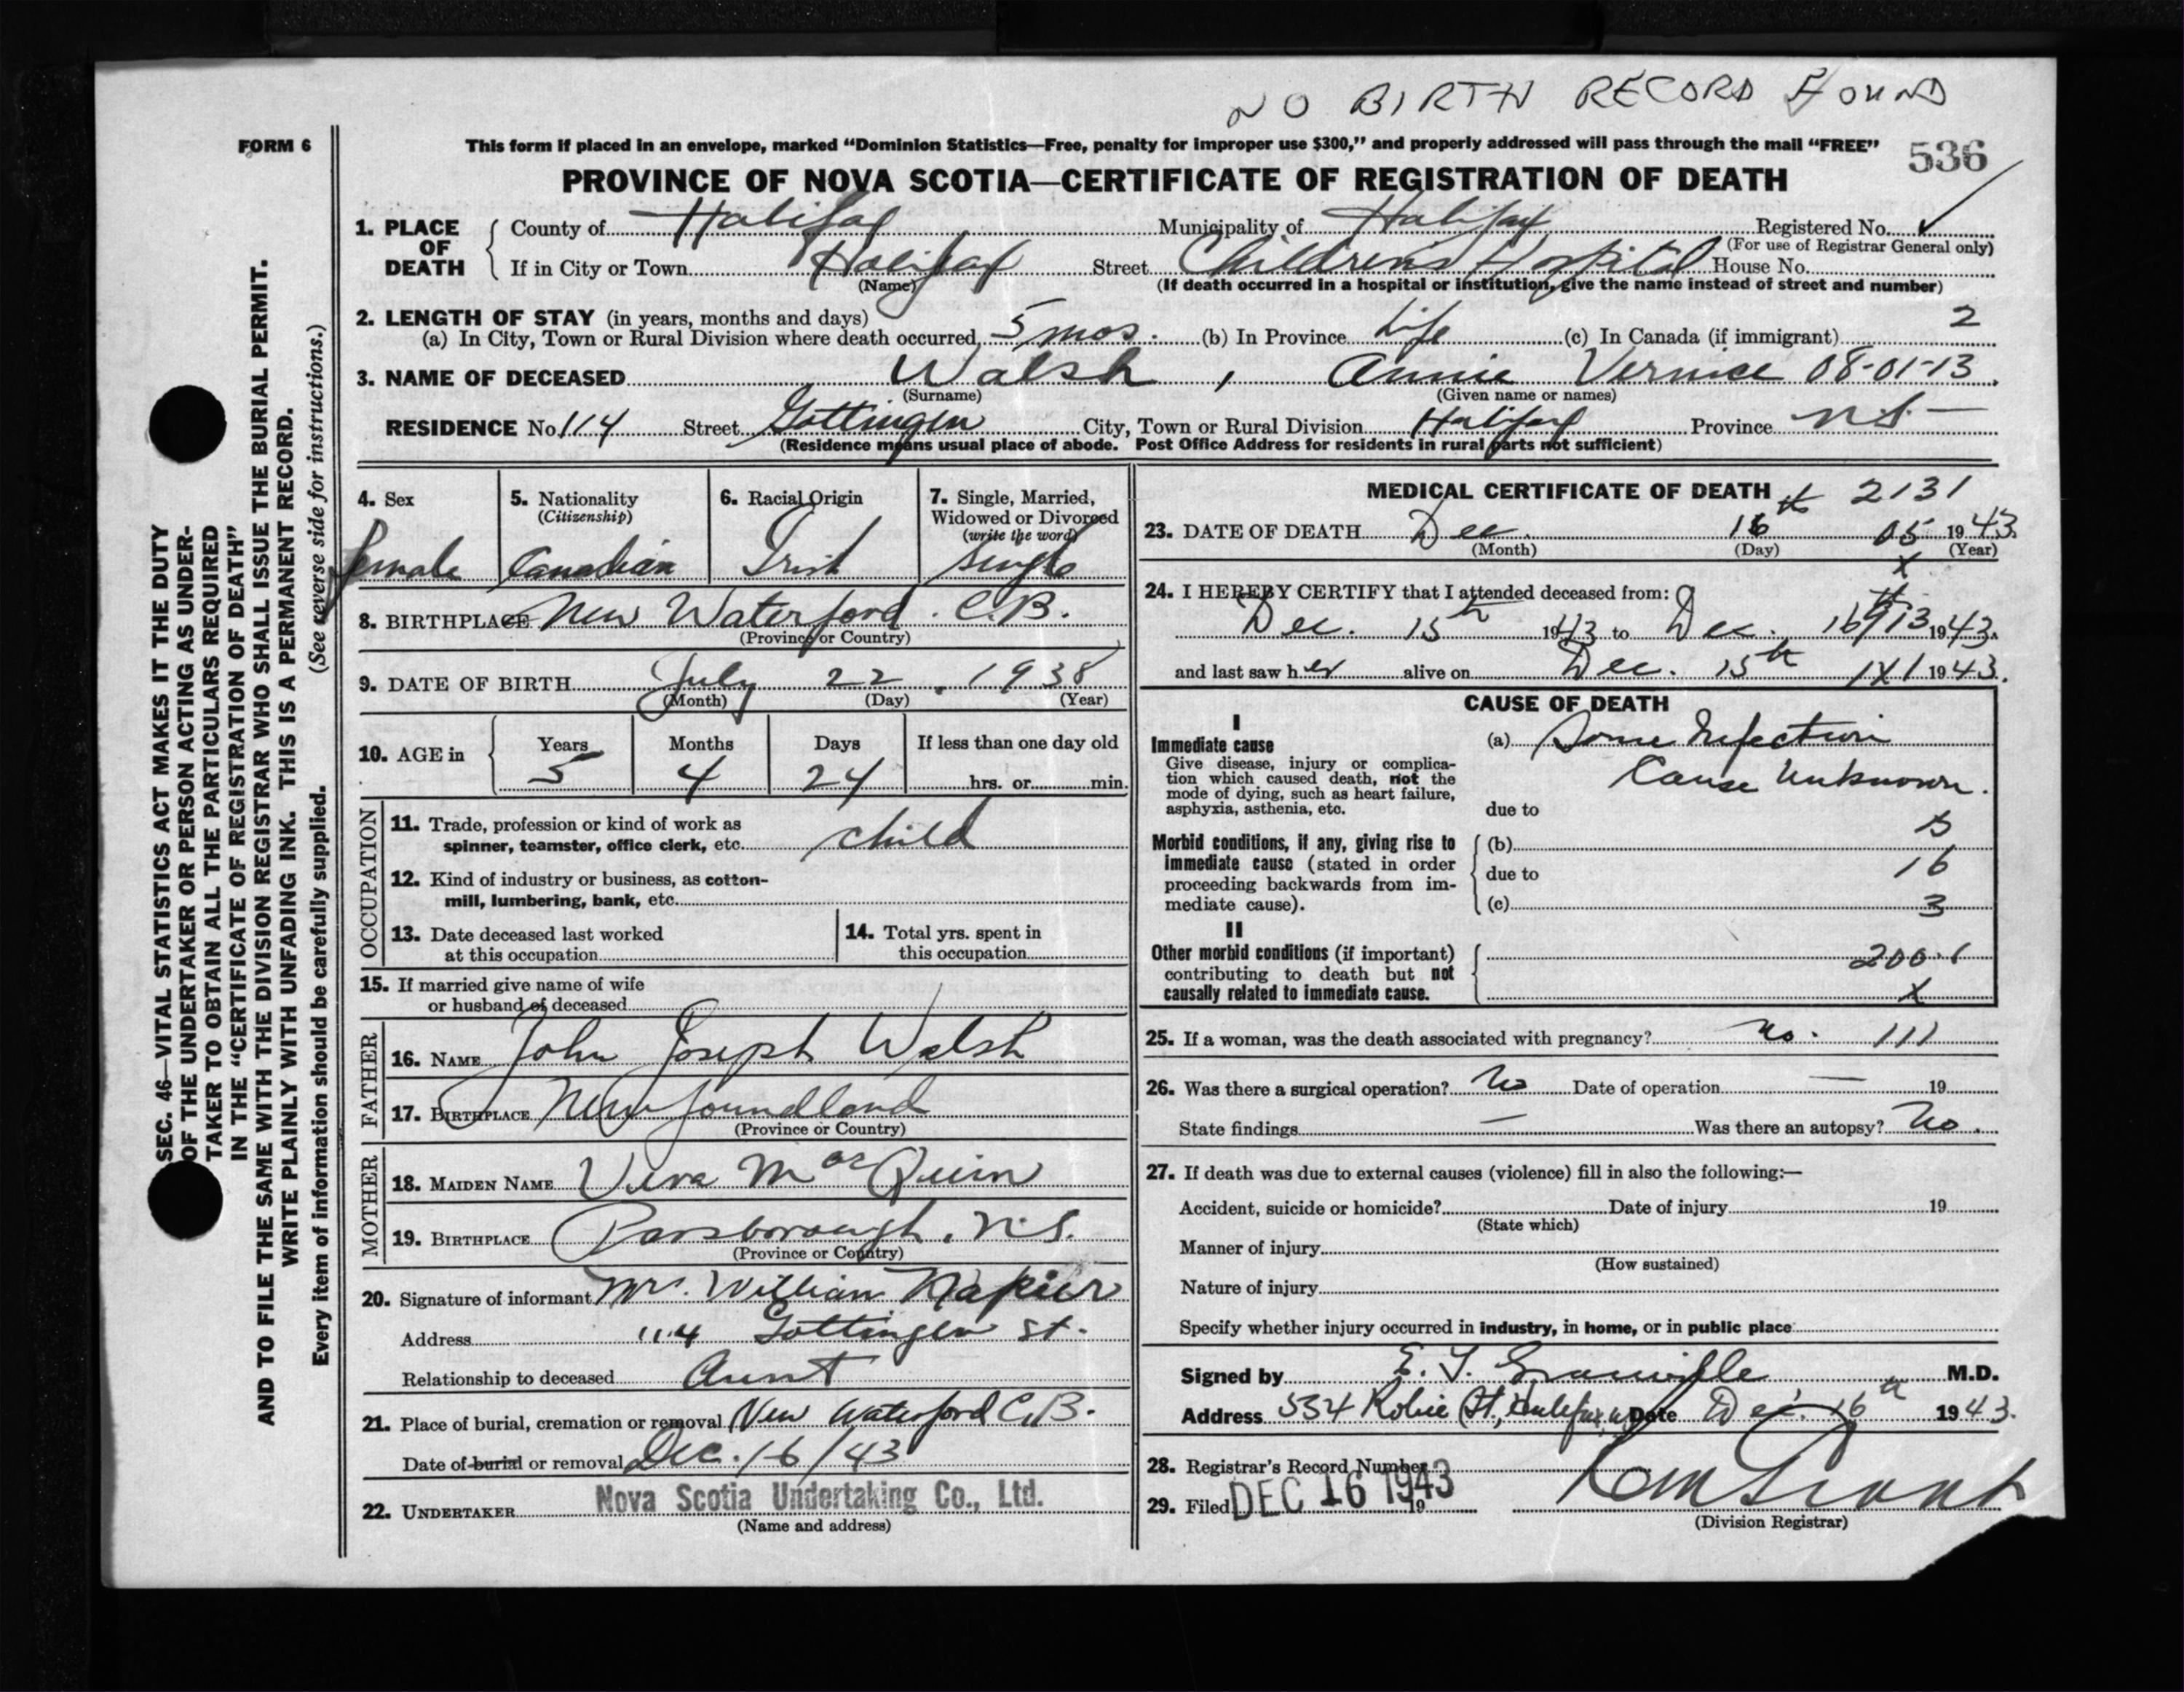 NO BIRTH RECORD FOUND
FORM 6
This form if placed in an envelope, marked “Dominion Statistics—Free, penalty for improper use $300,” and properly addressed will pass through the mail “FREE”
536
PROVINCE OF NOVA SCOTIA—CERTIFICATE OF REGISTRATION OF DEATH
1. PLACE OF DEATH
County of Halifax Municipality of Halifax Registered No. ✓
(For use of Registrar General only)
If in City or Town Halifax Street Children's Hospital House No.
(Name) (If death occurred in a hospital or institution, give the name instead of street and number)
2. LENGTH OF STAY (in years, months and days)
(a) In City, Town or Rural Division where death occurred 5 mos. (b) In Province Life (c) In Canada (if immigrant) 2
3. NAME OF DECEASED Walsh, Annie Vernice 08-01-13
(Surname) (Given name or names)
RESIDENCE No. 114 Street Gottingen City, Town or Rural Division Halifax Province N.S.—
(Residence means usual place of abode. Post Office Address for residents in rural parts not sufficient)
4. Sex female
5. Nationality (Citizenship) Canadian
6. Racial Origin Irish
7. Single, Married, Widowed or Divorced (write the word) single
8. BIRTHPLACE New Waterford. C.B.
(Province or Country)
9. DATE OF BIRTH July 22, 1938
(Month) (Day) (Year)
10. AGE in
Years Months Days If less than one day old
5 4 24 hrs. or min.
OCCUPATION
11. Trade, profession or kind of work as spinner, teamster, office clerk, etc. child
12. Kind of industry or business, as cotton-mill, lumbering, bank, etc.
13. Date deceased last worked at this occupation
14. Total yrs. spent in this occupation
15. If married give name of wife or husband of deceased
FATHER
16. NAME John Joseph Walsh
17. BIRTHPLACE Newfoundland
(Province or Country)
MOTHER
18. MAIDEN NAME Vera Mac Quin
19. BIRTHPLACE Parsborough, N.S.
(Province or Country)
20. Signature of informant Mrs. William Napier
Address 114 Gottingen St.
Relationship to deceased Aunt
21. Place of burial, cremation or removal New Waterford C.B.
Date of burial or removal Dec. 16/43
22. UNDERTAKER Nova Scotia Undertaking Co., Ltd.
(Name and address)
MEDICAL CERTIFICATE OF DEATH 2131
23. DATE OF DEATH Dec. 16th 05 1943.
(Month) (Day) (Year)
x
24. I HEREBY CERTIFY that I attended deceased from:
Dec. 15th 1943 to Dec. 16th 913 1943.
and last saw her alive on Dec. 15th 1X1 1943.
CAUSE OF DEATH
I
Immediate cause
Give disease, injury or complication which caused death, not the mode of dying, such as heart failure, asphyxia, asthenia, etc.
(a) Some Infection
Cause Unknown.
due to
Morbid conditions, if any, giving rise to immediate cause (stated in order proceeding backwards from immediate cause).
(b)
due to 16
(c) 3
II
Other morbid conditions (if important) contributing to death but not causally related to immediate cause.
200.1
X
25. If a woman, was the death associated with pregnancy? no. 111
26. Was there a surgical operation? No Date of operation — 19
State findings — Was there an autopsy? No.
27. If death was due to external causes (violence) fill in also the following:—
Accident, suicide or homicide? Date of injury 19
(State which)
Manner of injury
(How sustained)
Nature of injury
Specify whether injury occurred in industry, in home, or in public place
Signed by E. F. Granville M.D.
Address 334 Robie St., Halifax, Date Dec. 16th 1943.
28. Registrar's Record Number
29. Filed DEC 16 1943 19
(Division Registrar)
SEC. 46—VITAL STATISTICS ACT MAKES IT THE DUTY
OF THE UNDERTAKER OR PERSON ACTING AS UNDER-
TAKER TO OBTAIN ALL THE PARTICULARS REQUIRED
IN THE “CERTIFICATE OF REGISTRATION OF DEATH”
AND TO FILE THE SAME WITH THE DIVISION REGISTRAR WHO SHALL ISSUE THE BURIAL PERMIT.
WRITE PLAINLY WITH UNFADING INK. THIS IS A PERMANENT RECORD.
Every item of information should be carefully supplied. (See reverse side for instructions.)